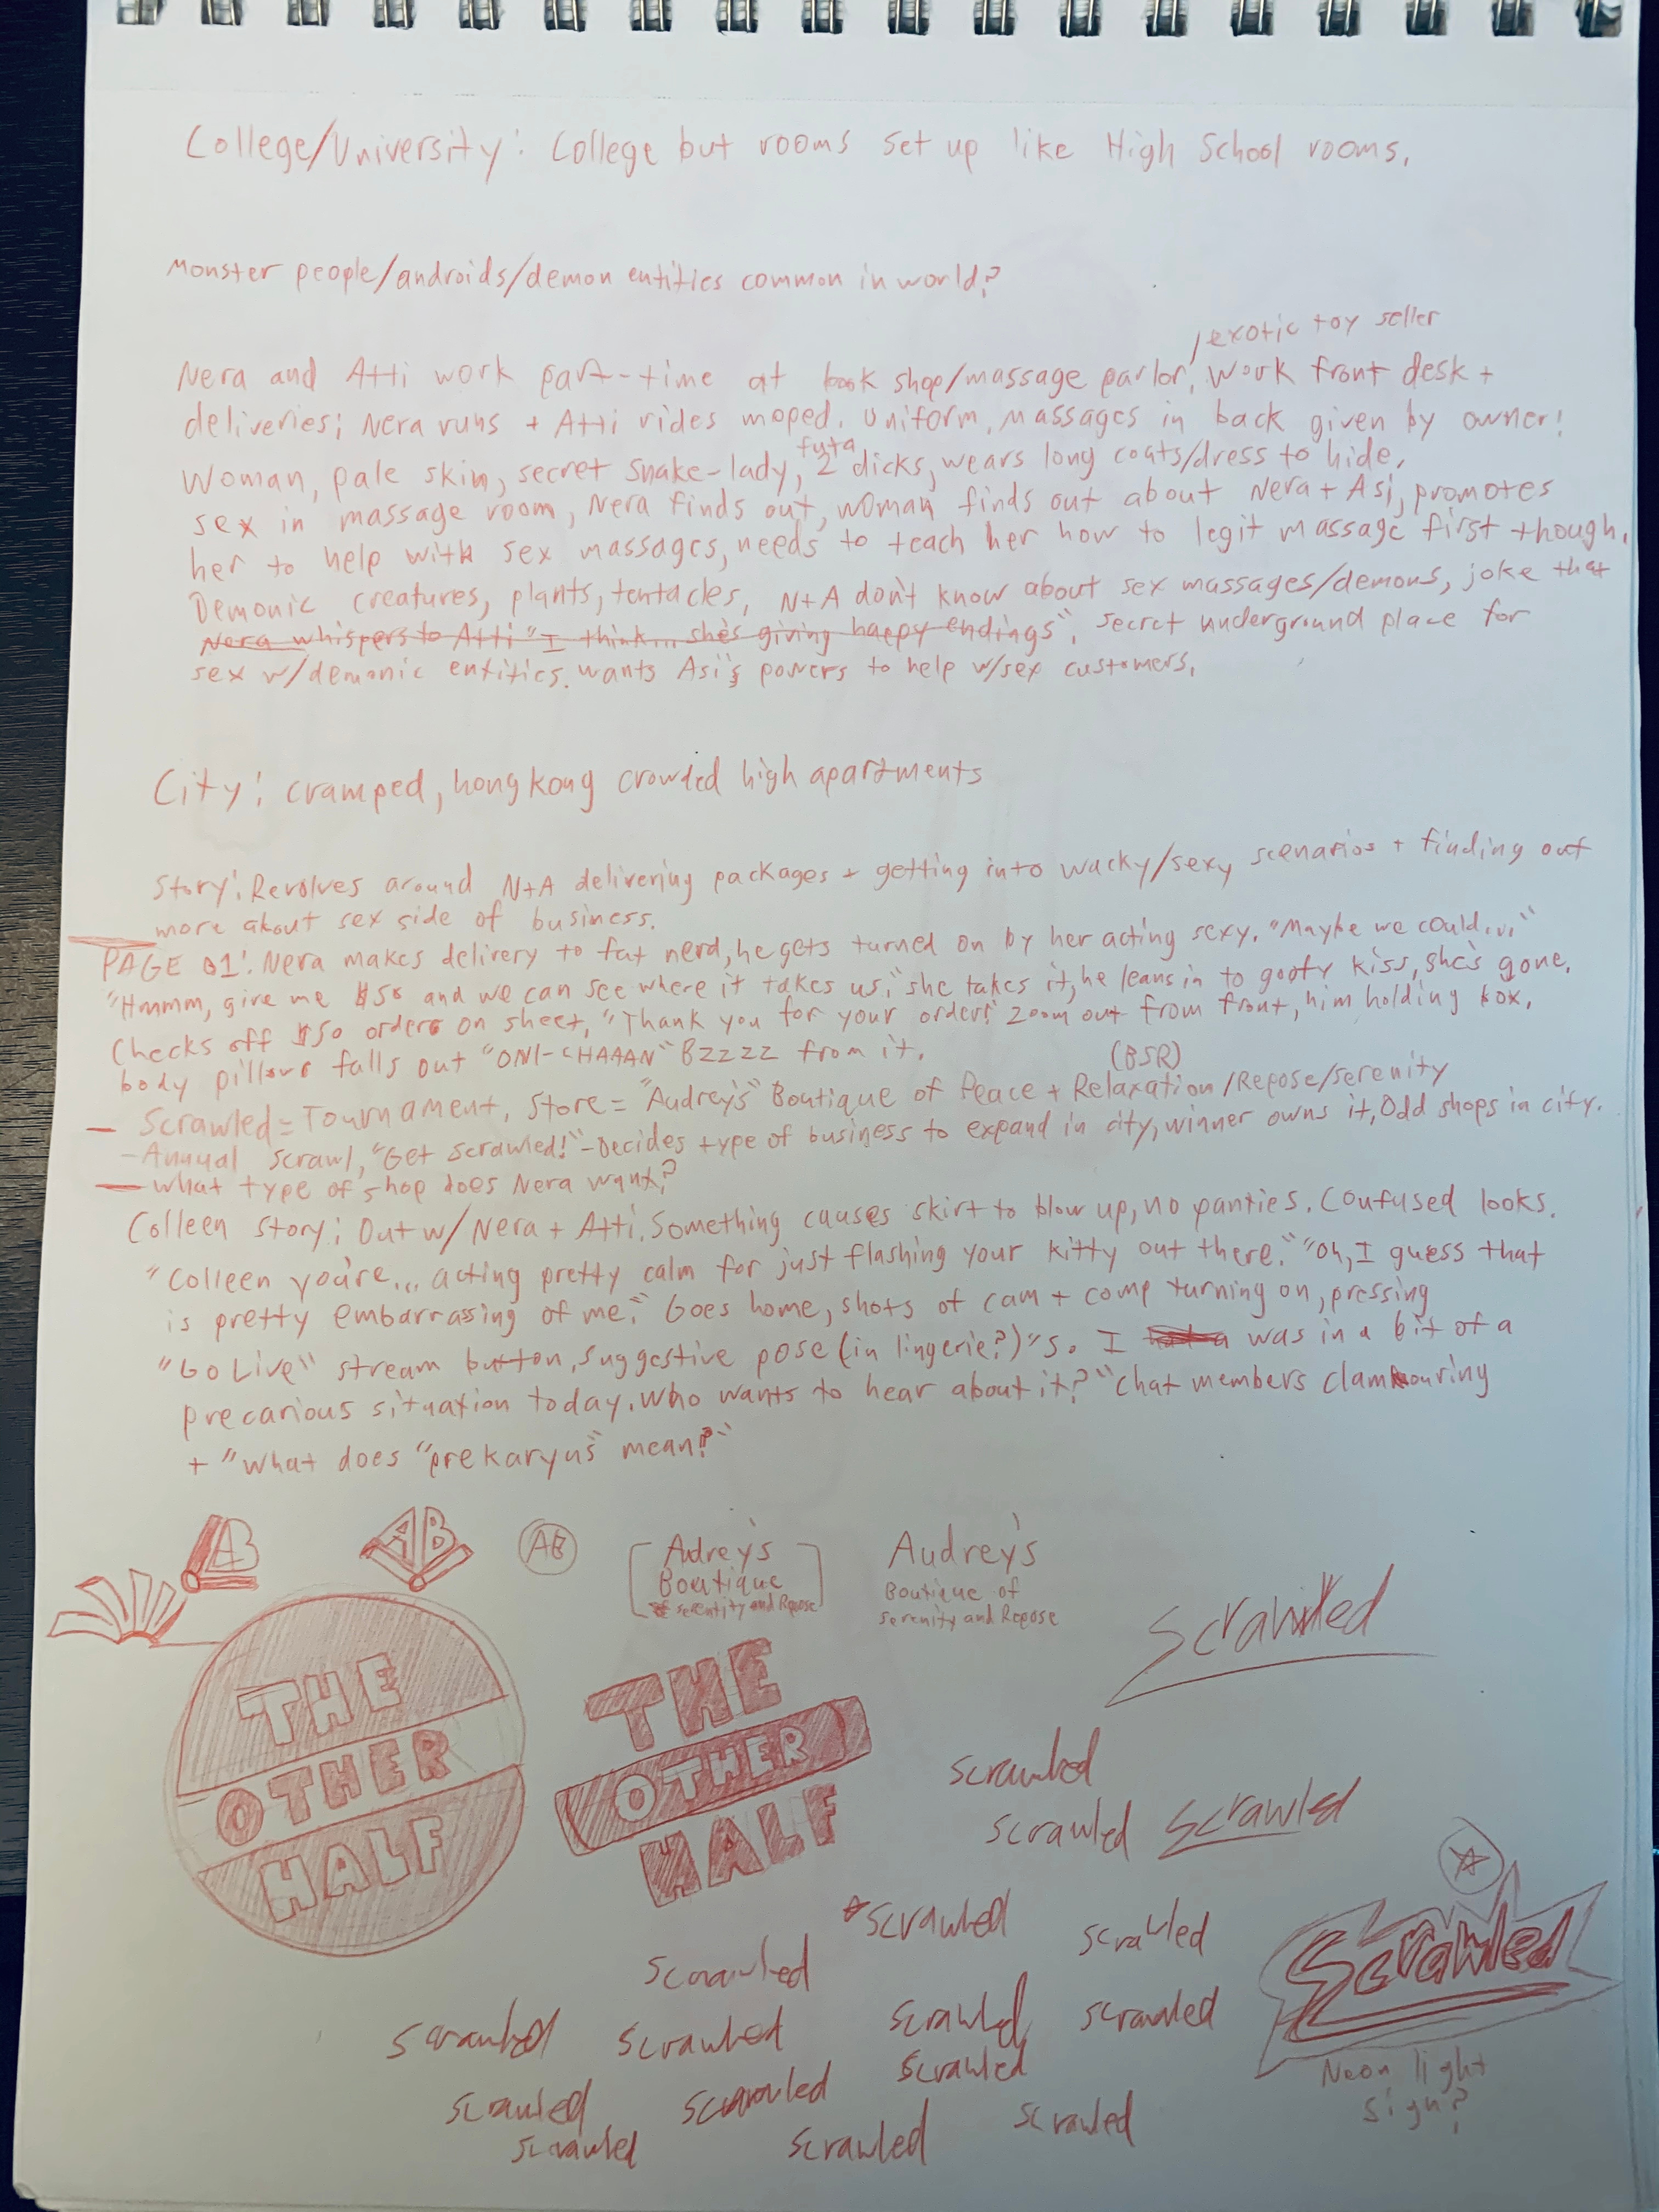 College/University: College but rooms set up like High School rooms.
Monster people/androids/demon entities common in world?
/exotic toy seller
Nera and Atti work part-time at book shop/massage parlor, work front desk +
deliveries; Nera runs + Atti rides moped. Uniform, massages in back given by owner!
futa
Woman, pale skin, secret snake-lady, 2 dicks, wears long coats/dress to hide,
sex in massage room, Nera finds out, woman finds out about Nera + Asi, promotes
her to help with sex massages, needs to teach her how to legit massage first though.
Demonic creatures, plants, tentacles, N+A don't know about sex massages/demons, joke that
Nera whispers to Atti "I think... she's giving happy endings", secret underground place for
sex w/demonic entities. wants Asi's powers to help w/sex customers.
City: cramped, hong kong crowded high apartments
Story: Revolves around N+A delivering packages + getting into wacky/sexy scenarios + finding out
more about sex side of business.
PAGE 01: Nera makes delivery to fat nerd, he gets turned on by her acting sexy. "Maybe we could..."
"Hmmm, give me $50 and we can see where it takes us," she takes it, he leans in to goofy kiss, she's gone.
Checks off $50 orders on sheet, "Thank you for your order!" Zoom out from front, him holding box,
body pillow falls out "ONI-CHAAAN" Bzzzz from it.
(BSR)
- Scrawled = Tournament, Store = "Audrey's" Boutique of Peace + Relaxation/Repose/Serenity
- Annual Scrawl, "Get Scrawled!" - Decides type of business to expand in city, winner owns it, Odd shops in city.
- What type of shop does Nera want?
Colleen story: Out w/ Nera + Atti. Something causes skirt to blow up, no panties. Confused looks.
"Colleen you're... acting pretty calm for just flashing your kitty out there." "Oh, I guess that
is pretty embarrassing of me." Goes home, shots of cam + comp turning on, pressing
"Go Live" stream button, suggestive pose (in lingerie?) "So I was in a bit of a
precarious situation today. Who wants to hear about it?" Chat members clamouring
+ "What does "prekaryus" mean?"
AB
AB
AB
Audrey's
Boutique
Serentity and Repose
Audrey's
Boutique of
Serenity and Repose
Scrawled
THE
OTHER
HALF
THE
OTHER
HALF
scrawled
scrawled scrawled
scrawled scrawled
scrawled
Scrawled
scrawled scrawled scrawled scrawled
scrawled
scrawled scrawled scrawled
scrawled scrawled
Neon light
sign?